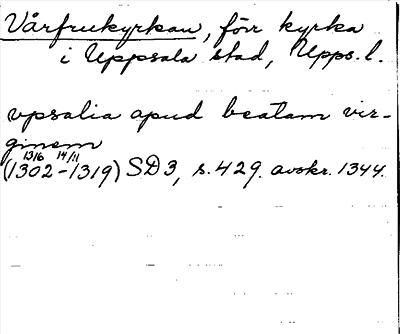 Vårfrukyrkan, förr kyrka
i Uppsala stad, Upps. l.
vpsalia apud beatam vir-
ginem
1316 14/11
(1302-1319) SD 3, s. 429. avskr. 1344.